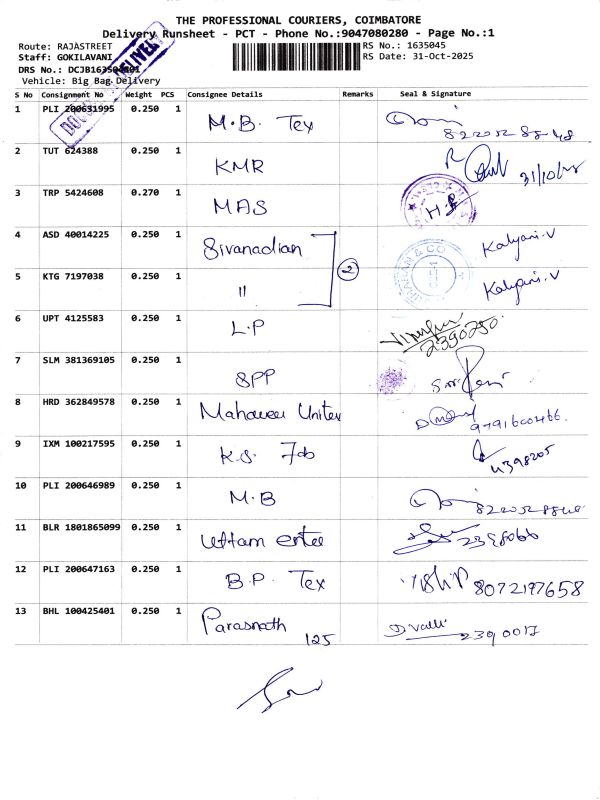 THE PROFESSIONAL COURIERS, COIMBATORE
Delivery Runsheet - PCT - Phone No.:9047080280 - Page No.:1
Route: RAJASTREET
RS No: 1635045
Staff: GOKILAVANI
RS Date: 31-Oct-2025
DRS No.: DCJB1635
Vehicle: Big Bag Delivery
S No Consignment No Weight PCS Consignee Details Remarks Seal & Signature
1 PLI 200631995 0.250 1 M.B. Tex
2 TUT 624388 0.250 1 KMR 31/10/
3 TRP 5424608 0.270 1 MAS H.S
4 ASD 40014225 0.250 1 Sivanadian Kalyani.V
2
5 KTG 7197038 0.250 1 11 Kalyani.V
6 UPT 4125583 0.250 1 L.P 2390250
7 SLM 381369105 0.250 1 SPP
8 HRD 362849578 0.250 1 Mahaveer 9791600466
9 IXM 100217595 0.250 1 K.S. Fab 4398205
10 PLI 200646989 0.250 1 M.B
11 BLR 1801865099 0.250 1 Uttam 2398066
12 PLI 200647163 0.250 1 B.P. Tex 8072197658
13 BHL 100425401 0.250 1 Parasnath 125 D valli 2390017